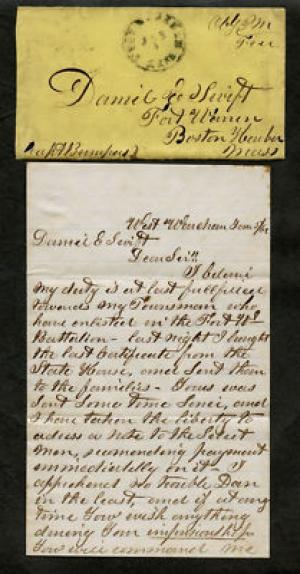 Daniel E Swift
Fort Warren
Boston Harbor
Mass
West Wareham
Daniel E Swift
Dear Sir
I
my duty is at last fullfilled
towards my Townsman who
have enlisted in the Fort
Battalion - last night I
the last Certificate from the
State House, and sent them
to the families - Yours was
sent some time Since, and
I have taken the liberty to
a note to the Select
Men, payment
on it - I
apprehend no trouble Dan
in the least, and if at any
time You wish anything
during Your
You will command me